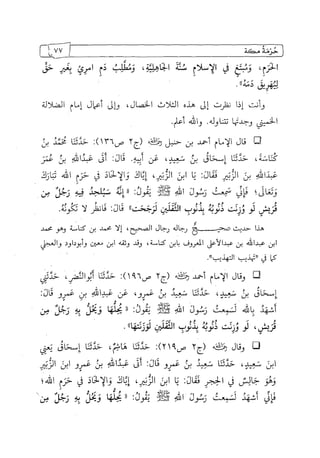 حُرْمَةُ مَكَّة ٧٧
الحَرَمِ، وَمُبْتَغٍ فِي الإِسْلَامِ سُنَّةَ الجَاهِلِيَّةِ، وَمُطَّلِبُ دَمِ امْرِئٍ بِغَيْرِ حَقٍّ
لِيُهَرِيقَ دَمَهُ».
وأنت إذا نظرت إلى هذه الثلاث الخصال، وإلى أعمال إمام الضلالة
الخميني وجدتها تتناوله. والله أعلم.
قال الإمام أحمد بن حنبل رحمه الله (ج٢ ص١٣٦): حَدَّثَنَا مُحَمَّدُ بنُ
كُنَاسَةَ، حَدَّثَنَا إِسحَاقُ بنُ سَعِيدٍ، عَن أَبِيهِ، قَالَ: أَتَى عَبدُاللهِ بنُ عُمَرَ
عَبدَاللهِ بنَ الزُّبَيرِ، فَقَالَ: يَا ابنَ الزُّبَيرِ، إِيَّاكَ وَالإِلحَادَ فِي حَرَمِ اللهِ تَبَارَكَ
وَتَعَالَى؛ فَإِنِّي سَمِعتُ رَسُولَ اللهِ ﷺ يَقُولُ: «إِنَّهُ سَيُلحِدُ فِيهِ رَجُلٌ مِن
قُرَيشٍ لَو وُزِنَت ذُنُوبُهُ بِذُنُوبِ الثَّقَلَينِ لَرَجَحَت» قَالَ: فَانظُر لَا تَكُونُهُ.
هذا حديث صحيح، رجاله رجال الصحيح، إلا محمد بن كناسة وهو محمد
ابن عبدالله بن عبدالأعلى المعروف بابن كناسة، وقد وثقه ابن معين وأبوداود والعجلي
كما في «تهذيب التهذيب».
وقال الإمام أحمد رحمه الله (ج٢ ص١٩٦): حَدَّثَنَا أَبُوالنَّضرِ، حَدَّثَنِي
إِسحَاقُ بنُ سَعِيدٍ، حَدَّثَنَا سَعِيدُ بنُ عَمرٍو، عَن عَبدِاللهِ بنِ عَمرٍو قَالَ:
أَشهَدُ بِاللهِ لَسَمِعتُ رَسُولَ اللهِ ﷺ يَقُولُ: «يُحِلُّهَا وَيَحُلُّ بِهِ رَجُلٌ مِن
قُرَيشٍ، لَو وُزِنَت ذُنُوبُهُ بِذُنُوبِ الثَّقَلَينِ لَوَزَنَتهَا».
وقال رحمه الله (ج٢ ص٢١٩): حَدَّثَنَا هَاشِمٌ، حَدَّثَنَا إِسحَاقُ يَعنِي
ابنَ سَعِيدٍ، حَدَّثَنَا سَعِيدُ بنُ عَمرٍو قَالَ: أَتَى عَبدُاللهِ بنُ عَمرٍو ابنَ الزُّبَيرِ
وَهُوَ جَالِسٌ فِي الحِجرِ فَقَالَ: يَا ابنَ الزُّبَيرِ، إِيَّاكَ وَالإِلحَادَ فِي حَرَمِ اللهِ؛
فَإِنِّي أَشهَدُ لَسَمِعتُ رَسُولَ اللهِ ﷺ يَقُولُ: «يُحِلُّهَا وَيَحُلُّ بِهِ رَجُلٌ مِن